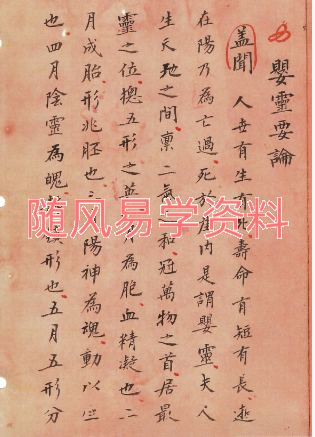 嬰靈要論
蓋聞 人世有生有死壽命有短有長逝
在陽乃為亡過死於産内是謂嬰靈夫人
生天地之間禀二氣和冠萬物之首居最
靈之位揔五形之英 為胞血精凝也二
月成胎形兆胚也三 陽神為魂動以生
也四月陰靈為魄 形也五月五形分
随风易学资料